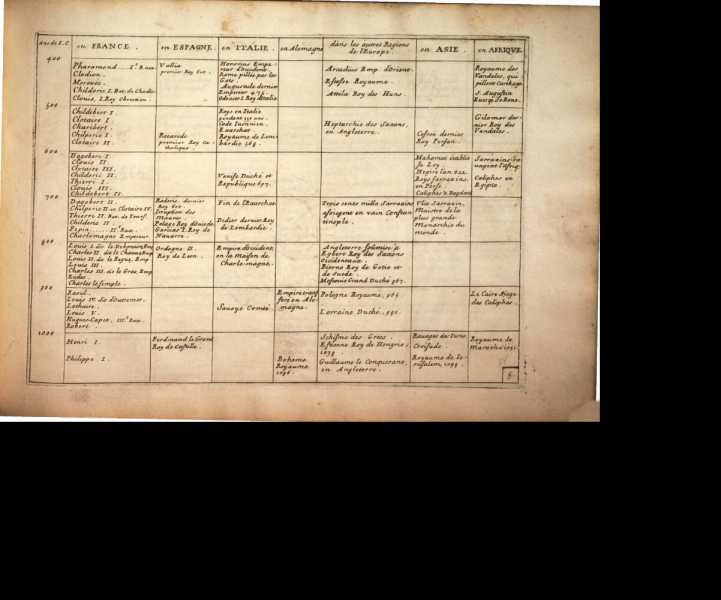 Ans de J.C. en FRANCE. en ESPAGNE. en ITALIE. en Alemagne dans les autres Regions de l'Europe. en ASIE. en AFRIQVE.
400
Pharamond.... I.e Race.
Clodion.
Merovée.
Childeric I.
Clouis, I. Roy Chretien.
Vallia
premier Roy Got.
Honorius Empereur d'Occident.
Rome pillée par les
Gots.
Augustule dernier
Empereur 476.
Odoacre I. Roy d'Italie.
Arcadius Emp. d'Orient.
Royaume.
Attila Roy des Huns.
Royaume des
Vandales, qui
pillent Carthage
S. Augustin
500
Childebert I.
Clotaire I
Charibert.
Chilperic I.
Clotaire II
Recarede
premier Roy Catholique.
Rois en Italie
Code Iustinien.
Exarchat
Royaume de Lombardie 568.
Heptarchie des Saxons,
en Angleterre.
Cosroé dernier
Roy Persan.
Gilomer dernier Roy des
Vandales.
600
Dagobert I.
Clouis II.
Clotaire III.
Childeric II.
Thierri I.
Clouis III.
Childebert II.
Venise Duché et
Republique 697.
Mahomet établit
sa Loy
Hegire l'an 622.
Roys Sarrazins
en Perse.
Caliphes à Bagdad
Sarrazins
Caliphes en
Egipte.
700
Dagobert II.
Chilperic II. et Clotaire IV.
Thierri II.
Childeric II
Pepin...... II.e Race.
Charlemagne Empereur.
Roderic dernier
Roy Got.
Irruption des
Mores.
Pelage Roy d'Ouiedo
Garcias I. Roy de
Navarre.
Fin de l'Exarchat
Didier dernier Roy
de Lombardie.
Trois cents mille Sarrazins
assiegent en vain Constantinople.
Vlit Sarrazin,
Maistre de la
plus grande
Monarchie du
monde.
800
Louis I. dit le Debonnaire Emp.
Charles II. dit le Chauve Emp.
Louis II. dit le Begue, Emp.
Louis III.
Charles III. dit le Gros, Emp.
Eudes
Charles le simple.
Ordogno II.
Roy de Leon.
Empire d'Occident,
en la Maison de
Charle-magne.
Angleterre soumise à
Egbert Roy des Saxons
Occidentaux.
Biorno Roy de Gotie et
de Suede.
Moscovie Grand Duché
900
Raoul.
Louis IV. dit d'Outremer.
Lothaire.
Louis V.
Hugues-Capet, III.e Race.
Robert.
Savoye Comté
Empire transferé en Alemagne.
Pologne Royaume,
Lorraine Duché,
Le Caire Siege
des Caliphes.
1000
Henri I.
Philippe I.
Ferdinand le Grand
Roy de Castille.
Boheme
Royaume
Schisme des Grecs.
Estienne Roy de Hongrie,
Guillaume le Conquerant,
en Angleterre.
Ravages des Turcs
Croisade.
Royaume de Ierusalem, 1099.
Royaume de
Maroc